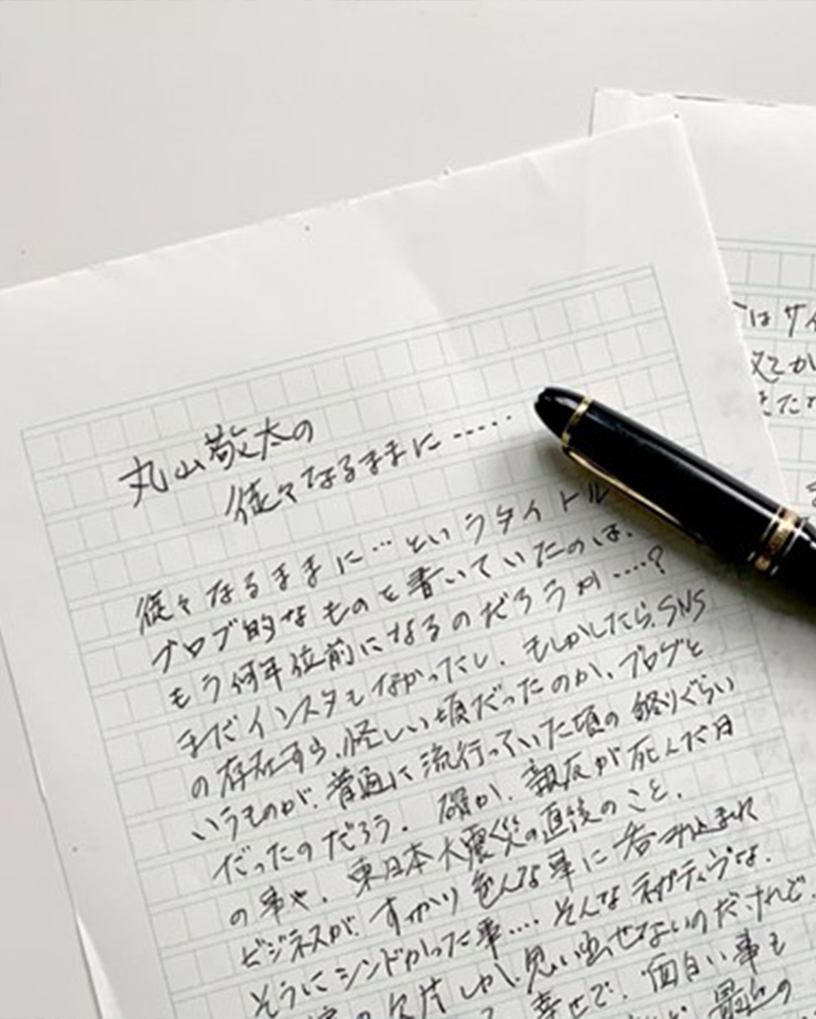 丸山敬太の
徒々なるままに……
徒々なるままに…というタイトル
ブログ的なものを書いていたのは、
もう何年位前になるのだろうか….?
まだインスタもなかったし、もしかしたら、SNS
の存在すら、怪しい頃だったのか、ブログと
いうものが、普通に流行っていた頃の終りぐらい
だったのだろう。確か、親友が死んだ日
の事や、東日本大震災の直後のこと、
ビジネスが、すっかり色んな事に呑み込まれ
そうにシンドかった事…. そんなネガティヴな、
の欠片しか、思い出せないのだけれど、
幸せで、面白い事も
最近の
はサイ